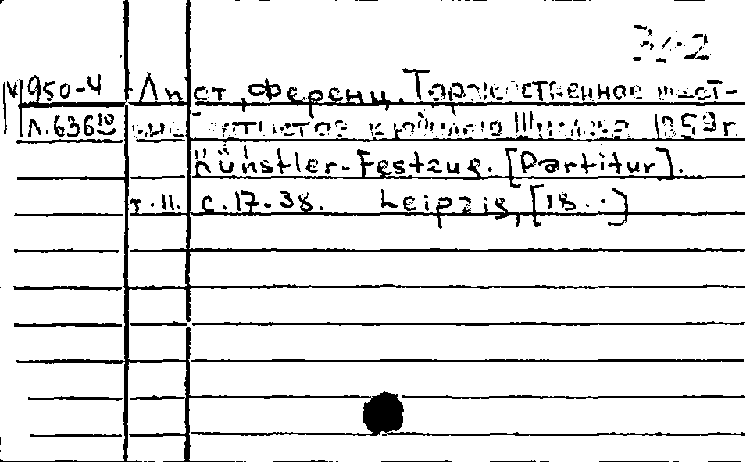 3/2
М950-4 Лист, Ференц. Торжественное шест-
Л.636 10 вие артистов к юбилею Шиллера 1859 г.
Künstler-Festzug. [Partitur].
т.11. с.17-38. Leipzig, [18..]